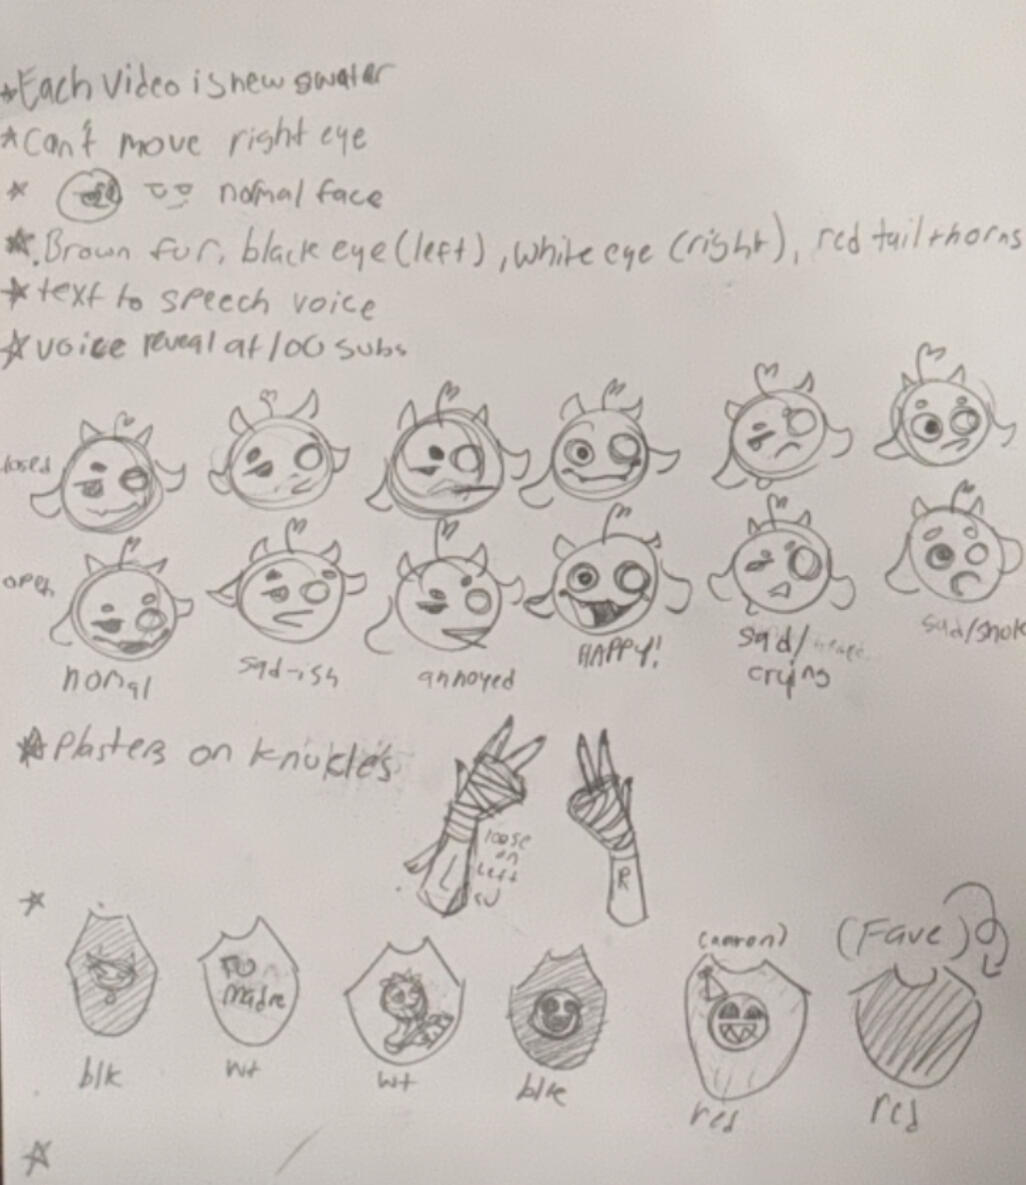 Each video is new swater
Can't move right eye
normal face
Brown fur, black eye (left), white eye (right), red tail + horns
text to speech voice
voice reveal at 100 subs
losed
open
nomal
sad-ish
annoyed
HAPPY!
sad/
crying
sad/
Plasters on knukles
loose
on
left
R
(Fave)
madre
blk
wt
wt
blk
red
red